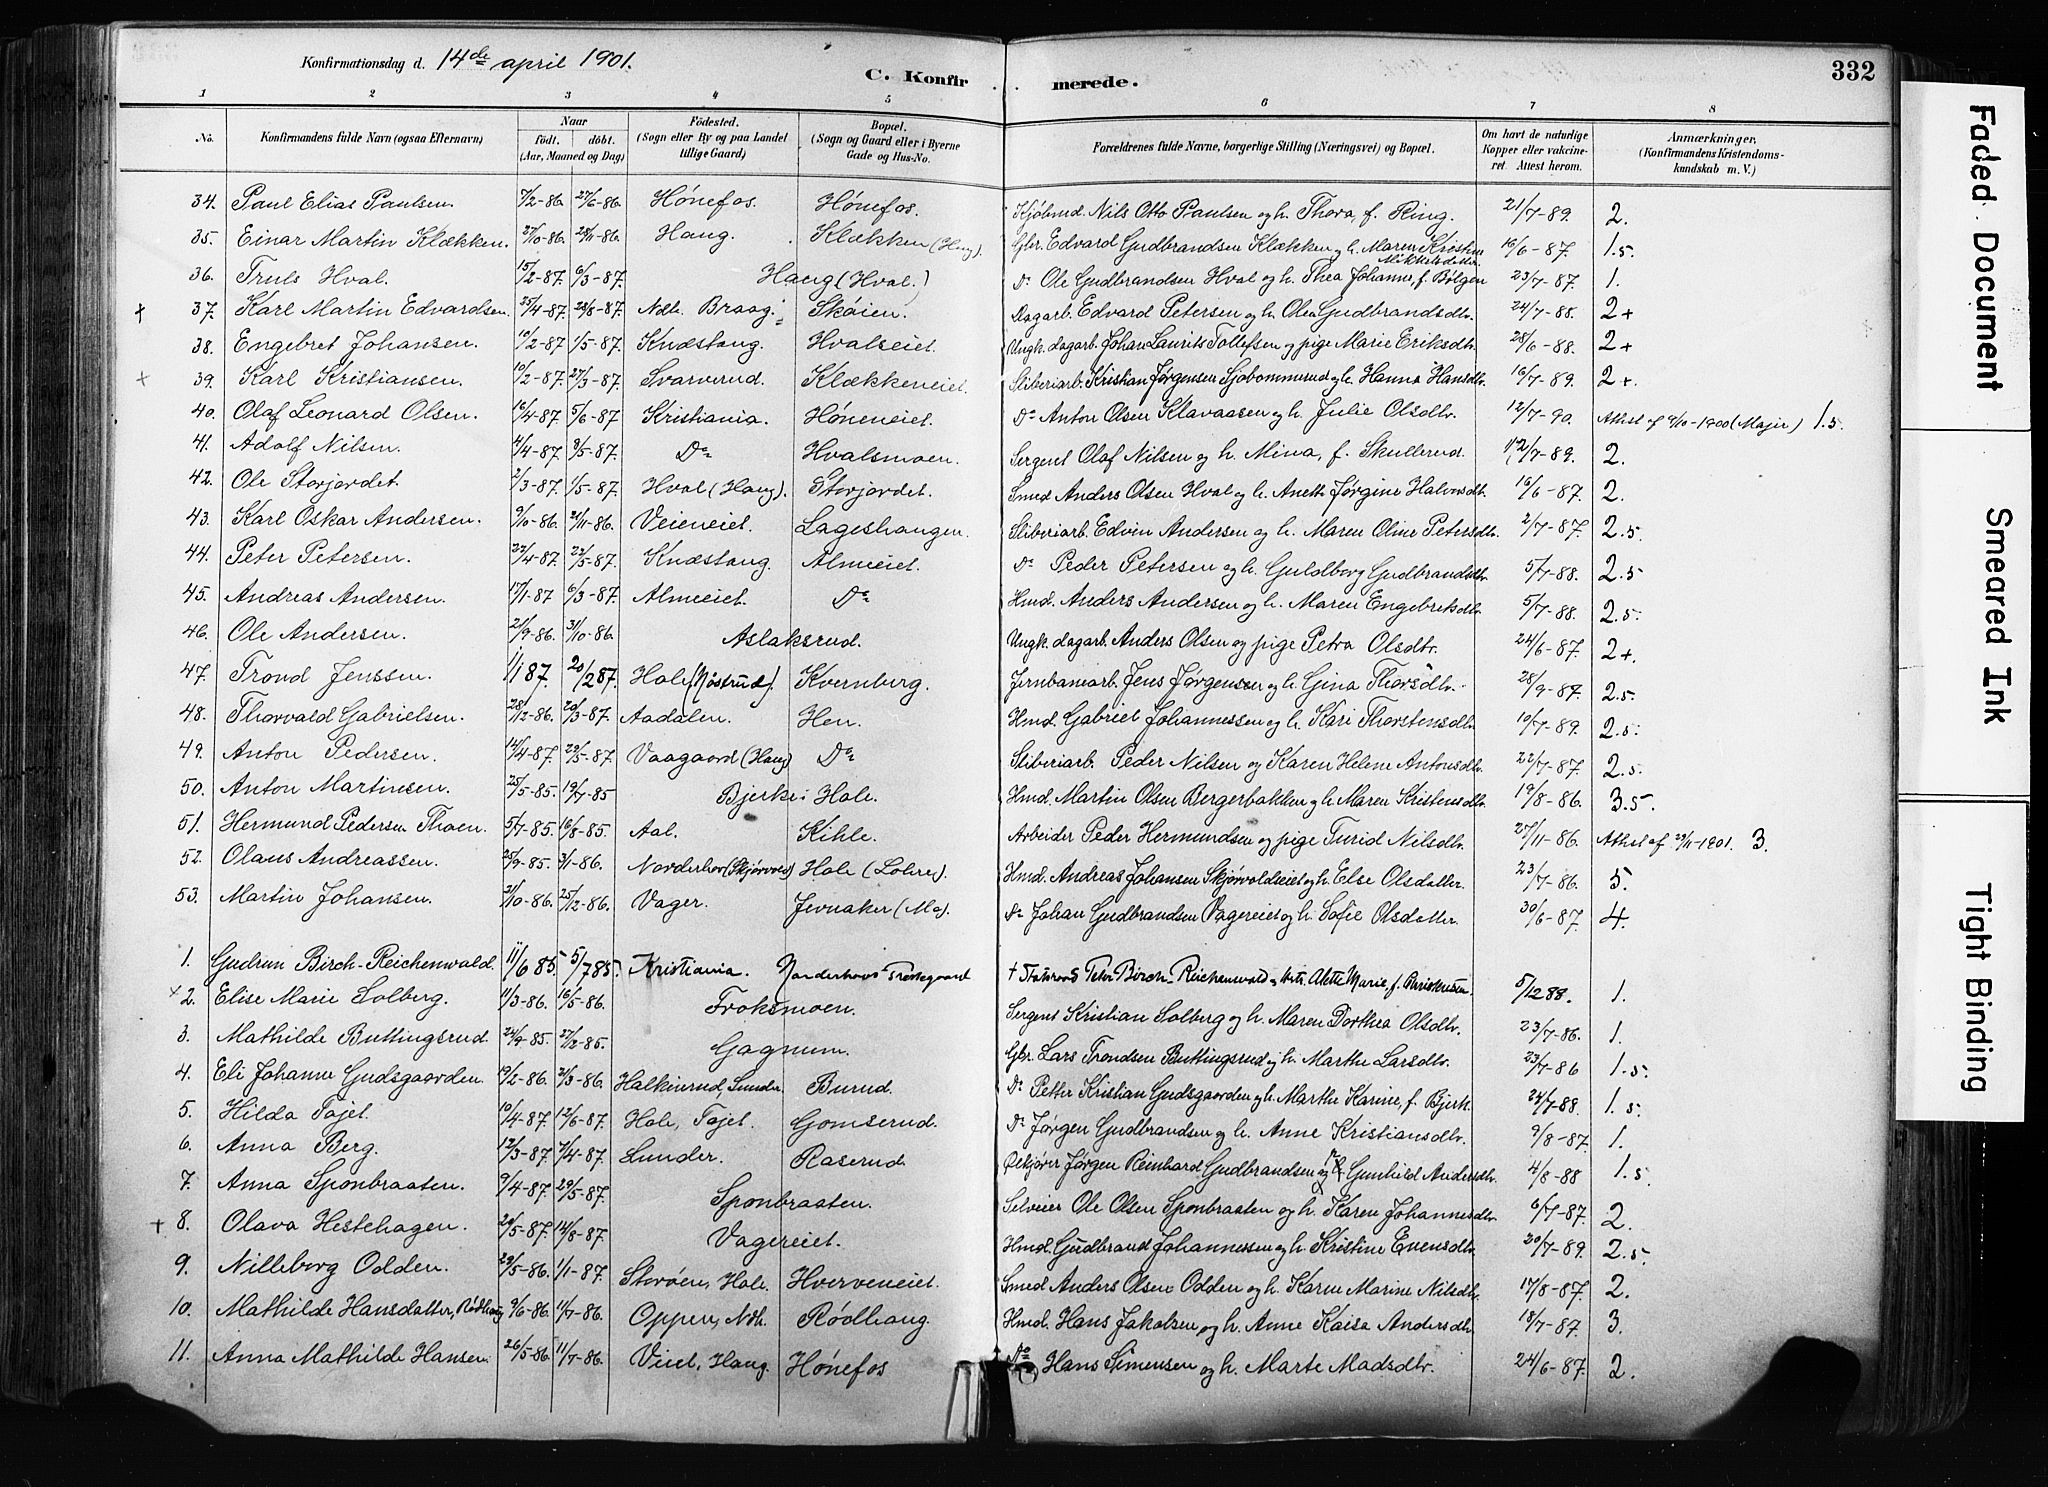 Konfirmationsdag d. 14de april 1901.
C. Konfirmerede.
332
1 2 3 4 5 6 7 8
No. Konfirmandens fulde Navn (ogsaa Efternavn) Naar født. døbt. (Aar, Maaned og Dag) Fødested. (Sogn eller By og paa Landet tillige Gaard) Bopæl. (Sogn og Gaard eller i Byerne Gade og Hus-No. Forældrenes fulde Navne, borgerlige Stilling (Næringsvei) og Bopæl. Om havt de naturlige Kopper eller vakcineret. Attest herom. Anmærkninger. (Konfirmandens Kristendomskundskab m. V.)
34. Paul Elias Paulsen. 7/2-86. 27/6-86. Hønefos. Hønefos. Kjøbmd. Nils Otto Paulsen og h. Thora, f. Ring. 21/7-89. 2.
35. Einar Martin Klækken. 27/10-86. 28/11-86. Haug. Klækken (Haug). Gbr. Edvard Gudbrandsen Klækken og h. Maren Kristine Mikkelsdatter. 16/6-87. 1.5.
36. Truls Hval. 15/2-87. 6/3-87. Haug (Hval.) Do Ole Gudbrandsen Hval og h. Thea Johanne, f. Bølgen 23/7-87. 1.
+ 37. Karl Martin Edvardsen. 25/4-87. 28/8-87. Ndh. Braag. Skøien. Dagarb. Edvard Petersen og h. Olea Gudbrandsdtr. 24/7-88. 2+
38. Engebret Johansen. 10/2-87. 1/5-87. Knæstang. Hvalseiet. Ungk. dagarb. Johan Laurits Tollefsen og pige Marie Eriksdtr. 28/6-88. 2+
+ 39. Karl Kristiansen. 10/2-87. 27/3-87. Svarverud. Klækkeneiet. Sliberiarb. Kristian Jørgensen Sjøbommerud og h. Hanna Hansdtr. 16/7-89. 2+.
40. Olaf Leonard Olsen. 16/4-87. 5/6-87 Kristiania. Høneneiet. Do Anton Olsen Klavaasen og h. Julie Olsdtr. 12/7-90. Athst af 9/10-1900 (Majir) 1.5.
41. Adolf Nilsen. 4/4-87. 8/5-87. Do Hvalsmoen. Sergent Olaf Nilsen og h. Mina, f. Skullerud. 12/7-89. 2.
42. Ole Storjordet. 2/3-87. 1/5-87. Hval (Haug). Storjordet. Smed Anders Olsen Hval og h. Anette Jørgine Halvorsdtr. 16/6-87. 2.
43. Karl Oskar Andersen. 9/10-86. 21/11-86. Veieneiet. Lageshaugen. Sliberiarb. Edvin Andersen og h. Maren Oline Petersdtr. 2/7-87. 2.5.
44. Peter Petersen. 22/4-87. 22/5-87. Knæstang. Almeiet. Do Peder Petersen og h. Guldborg Gudbrandsdtr. 5/7-88. 2.5
45. Andreas Andersen. 17/1-87 6/3-87. Almeiet. Do Hmd. Anders Andersen og h. Maren Engebretsdtr. 5/7-88. 2.5.
46. Ole Andersen. 21/9-86. 31/10-86. Aslaksrud. Ungk. dagarb. Anders Olsen og pige Petra Olsdtr. 24/6-87. 2+.
47. Trond Jenssen. 1/1 87. 20/2 87. Hole (Røstrud). Kvernberg. Jernbanearb. Jens Jørgensen og h. Gina Thorsdtr. 28/9-87. 2.5.
48. Thorvald Gabrielsen. 28/12-86. 20/3-87. Aadalen. Hen. Hmd. Gabriel Johannessen og h. Kari Thorstensdtr. 10/7-89. 2.5.
49. Anton Pedersen. 14/4-87. 29/5-87. Vaagaard (Haug) Do Sliberiarb. Peder Nilsen og Karen Helene Antonsdtr. 22/7-87. 2.5.
50. Anton Martinsen. 25/5-85. 19/7-85 Bjerke i Hole. Hmd. Martin Olsen Bergerbakken og h. Maren Kristensdtr. 19/8-86. 3.5.
51. Hermund Pedersen Thoen. 5/7-85. 16/8-85. Aal. Kihle. Arbeider Peder Hermundsen og pige Turid Nilsdtr. 27/11-86. Athst af 29/11-1901. 3.
52. Olaus Andreassen. 25/9-85. 3/1-86. Norderhov (Skjørvold) Hole (Lohre). Hmd. Andreas Johansen Skjørvoldseiet og h. Else Olsdatter. 23/7-86. 5.
53. Martin Johansen. 31/10-86. 25/12-86. Vager. Jevnaker (Mo). Do Johan Gudbrandsen Vagereiet og h. Sofie Olsdatter. 30/6-87. 4.
1. Gudrun Birch-Reichenwald. 11/6 85. 5/7 85. Kristiania. Norderhovs Prestegaard † Statsraad Peter Birch-Reichenwald og h. Alette Marie, f. 5/12 88. 1.
× 2. Elise Marie Solberg. 11/3-86. 16/5-86. Froksmoen. Sergent Kristian Solberg og h. Maren Dorthea Olsdtr. 23/7-86. 1.
3. Mathilde Buttingsrud. 24/9-85. 27/12-85. Gagnum. Gbr. Lars Trondsen Buttingsrud og h. Marthe Larsdtr. 23/7-86 1.5.
4. Eli Johanne Gudsgaarden. 19/2-86. 21/3-86. Halkinrud, Lunder. Burud. Do Petter Kristian Gudsgaarden og h. Marthe Karine, f. Bjerk. 24/7-88. 1.5.
5. Hilda Fajet. 10/4-87. 12/6-87. Hole, Fajet. Gomserud. Do Jørgen Gudbrandsen og h. Anne Kristiansdtr. 9/8-87. 1.
6. Anna Berg. 12/3-87. 7/4-87. Lunder. Raserud. Jørgen Reinhard Gudbrandsen og h. Gunhild Andersdtr. 4/8-88 1.5.
7. Anna Sponbraaten. 9/4-87. 29/5-87. Sponbraaten. Selveier Ole Olsen Sponbraaten og h. Karen Johannesdtr. 6/7-87. 2.
+ 8. Olava Hestehagen. 20/5-87. 14/8-87. Vagereiet. Hmd. Gudbrand Johannessen og h. Kristine Evensdtr. 20/7-89. 2.5.
9. Nilleborg Odden. 29/5-86. 1/1-87. Storøen, Hole. Hverveneiet. Smed Anders Olsen Odden og h. Karen Marine Nilsdtr. 17/8-87. 2.
10. Mathilde Hansdatter, Rødhaug 9/6-86. 11/7-86. Oppen, Ndh. Rødhaug. Hmd. Hans Jakobsen og h. Anne Kaisa Andersdtr. 18/7-87. 3.
11. Anna Mathilde Hansen. 26/5-86. 11/7-86. Viul, Haug. Hønefos Do Hans Simensen og h. Marte Madsdtr. 24/6-87. 2.
Faded Document
Smeared Ink
Tight Binding